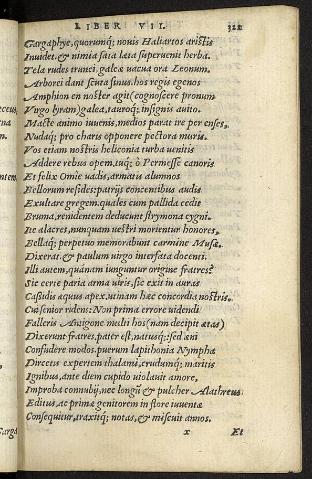 LIBER VII. 321
Gargaphye, quorumq; nouis Haliartos aristis
Inuidet. & nimia sata læta superuenit herba.
Tela rudes trunci. galeæ uacua ora Leonum.
Arborei dant scuta sinus. hos regis egenos
Amphion en noster agit (cognoscere pronum
Virgo lyram) galea, tauroq; insignis auito.
Macte animo iuuenis, medios parat ire per enses,
Nudaq; pro charis opponere pectora muris.
Vos etiam nostris heliconia turba uenitis
Addere rebus opem, tuq; ô Permesse canoris
Et felix Omie uadis, armatis alumnos
Bellorum resides: patrijs concentibus audis
Exultare gregem. quales cum pallida cedit
Bruma, renidentem deducunt strymona cygni.
Ite alacres, nunquam uestri morientur honores.
Bellaq; perpetuo memorabunt carmine Musæ.
Dixerat. & paulum uirgo interfata docenti.
Illi autem, quánam iunguntur origine fratres?
Sic certe paria arma uiris, sic exit in auras
Cassidis aquus apex. utinam hæc concordia nostris.
Cui senior ridens: Non prima errore uidendi
Falleris Antigone multi hos (nam decipit ætas)
Dixerunt fratres. pater est, natusq; : sed æui
Confudere modos. puerum lapithonia Nymphæ
Dircetis expertem thalami, crudumq; maritis
Ignibus, ante diem cupido uiolauit amore,
Improba connubij, nec longū & pulcher Alathreus
Editus, ac primæ genitorem in flore iuuentæ
Consequitur, traxitq; notas, & miscuit annos.
x Et